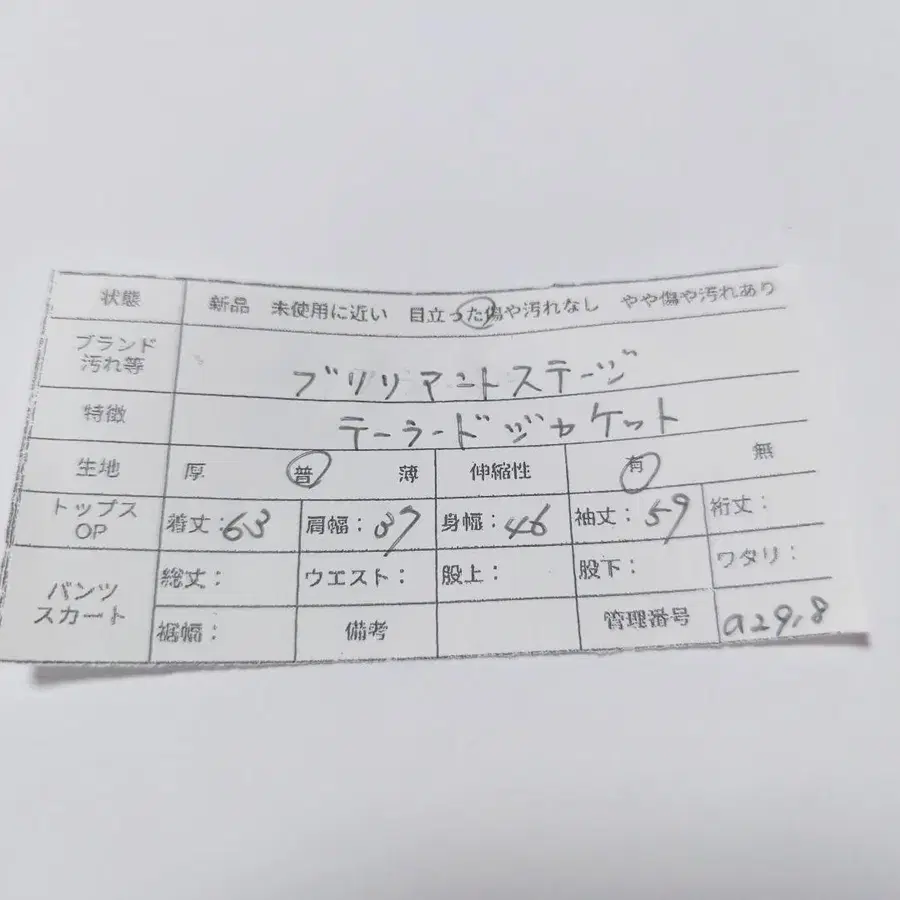 状態 新品 未使用に近い 目立った傷や汚れなし やや傷や汚れあり
ブランド
汚れ等 ブリリアントステージ
特徴 テーラードジャケット
生地 厚 普 薄 伸縮性 有 無
トップス
OP 着丈:63 肩幅:37 身幅:46 袖丈:59 裄丈:
パンツ
スカート 総丈: ウエスト: 股上: 股下: ワタリ:
裾幅: 備考 管理番号 a29,8